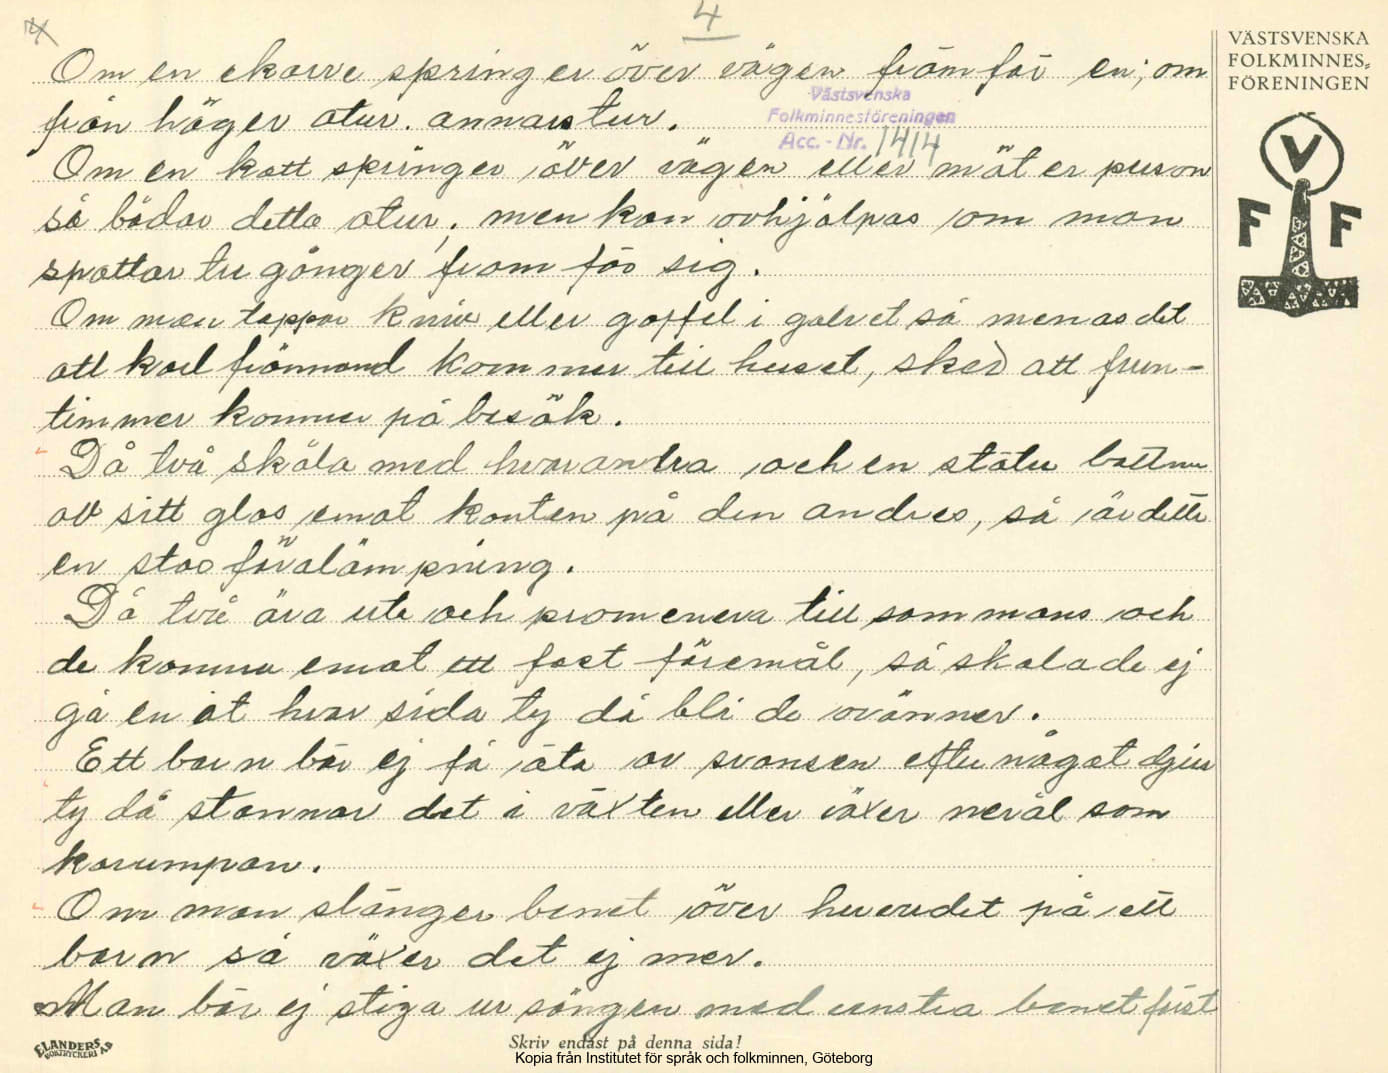 4
VÄSTSVENSKA
FOLKMINNES-
FÖRENINGEN
V
F F
Västsvenska
Folkminnesföreningen
Acc.-Nr. 1414
Om en ekorre springer över vägen framför en; om
från höger otur. annars tur.
Om en katt springer över vägen eller möter person
så bådar detta otur, men kan avhjälpas om man
spottar tre gånger fram för sig.
Om man tappar kniv eller gaffel i golvet så menas det
att karl främmand kommer till huset, sked att frun-
timmer kommer på besök.
Då två skåla med hvarandra och en stöter bottnen
av sitt glas emot kanten på den andres, så är dette
en stor förolämpning.
Då två äro ute och promenera till sammans och
de komma emot ett fast föremål, så skola de ej
gå en åt hvar sida ty då bli de ovänner.
Ett barn bör ej få äta av svansen efter något djur
ty då stannar det i växten eller växer neråt som
korumpan.
Om man slänger benet över huvudet på ett
barn så växer det ej mer.
Man bör ej stiga ur sängen med venstra benet först
ELANDERS
BOKTRYCKERI AB
Skriv endast på denna sida!
Kopia från Institutet för språk och folkminnen, Göteborg